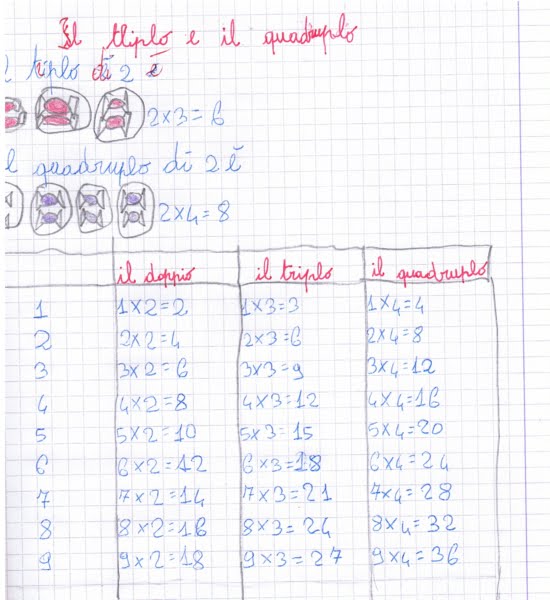 Il tliplo e il quadruplo
l triplo di 2 è
2×3=6
l quadruplo di 2 è
2×4=8
il doppio il triplo il quadruplo
1 1×2=2 1×3=3 1×4=4
2 2×2=4 2×3=6 2×4=8
3 3×2=6 3×3=9 3×4=12
4 4×2=8 4×3=12 4×4=16
5 5×2=10 5×3=15 5×4=20
6 6×2=12 6×3=18 6×4=24
7 7×2=14 7×3=21 7×4=28
8 8×2=16 8×3=24 8×4=32
9 9×2=18 9×3=27 9×4=36